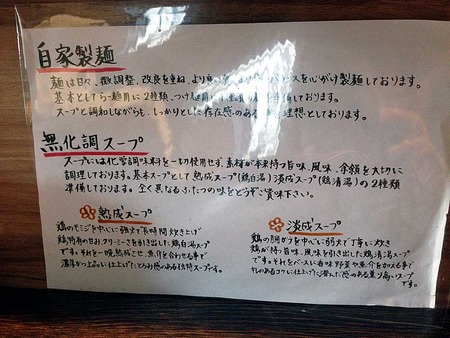 自家製麺
麺は日々、微調整、改良を重ね、より バランスを心がけ製麺しております。
基本としてらー麺用に2種類、つけ麺用に しております。
スープと調和しながらも、しっかりとした存在感のある 理想としております。
無化調スープ
スープには化学調味料を一切使用せず、素材が本来持つ旨味、風味、余韻を大切に
調理しております。基本スープとして熟成スープ(鶏白湯)淡成スープ(鶏清湯)の2種類
準備しております。全く異なるふたつの味をどうぞご賞味下さい。
熟成スープ
鶏のモミジを中心に強火で長時間炊き上げ
鶏特有の甘みクリーミーさを引き出した鶏白湯スープ
です。それを一晩熟成させ、魚介を合わせる事で
濃厚かつ上品に仕上げたとろみ感のある特濃スープです。
淡成スープ
鶏の胴ガラを中心に弱火で丁寧に炊き
鶏が持つ旨味、風味を引き出した鶏清湯スープ
です。それをベースに香味野菜や魚介を加える事で
キレのあるコクに仕上げた澄んだ感のある薫り高いスープ
です。